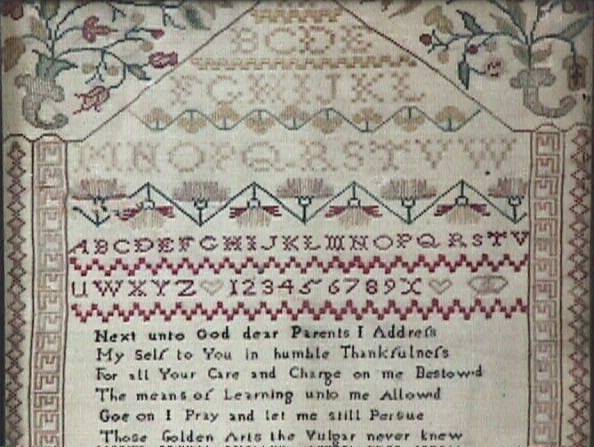 BCDE
FGHIJKL
MNOPQRSTVW
ABCDEFGHIJKLMNOPQRSTV
UWXYZ 123456789X
Next unto God dear Parents I Addreſs
My Self to You in humble Thankfulneſs
For all Your Care and Charge on me Bestow·d
The means of Learning unto me Allowd
Goe on I Pray and let me still Persue
Those Golden Arts the Vulgar never knew